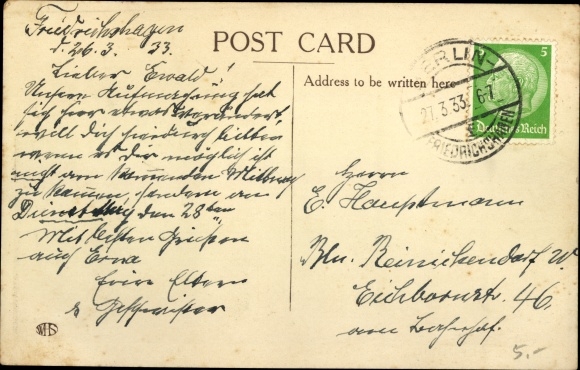 Friedrichshagen
d. 26. 3. 33.
POST CARD
Address to be written here
Lieber Ewald!
Unsere
sich hier etwas verändert
will Dich hierdurch bitten
wenn es Dir möglich ist
am kommenden Mittwoch
zu kommen, sondern am
Dienstag den 28ten
Mit besten Grüssen
auch Erna
Eure Eltern
& Geschwister
BERLIN-
27.3.33. 6-7
FRIEDRICHSHAGEN
5
Deutsches Reich
Herrn
E. Hauptmann
Bln. Reinickendorf W.
Eichbornstr. 46,
am Bahnhof.
5.-